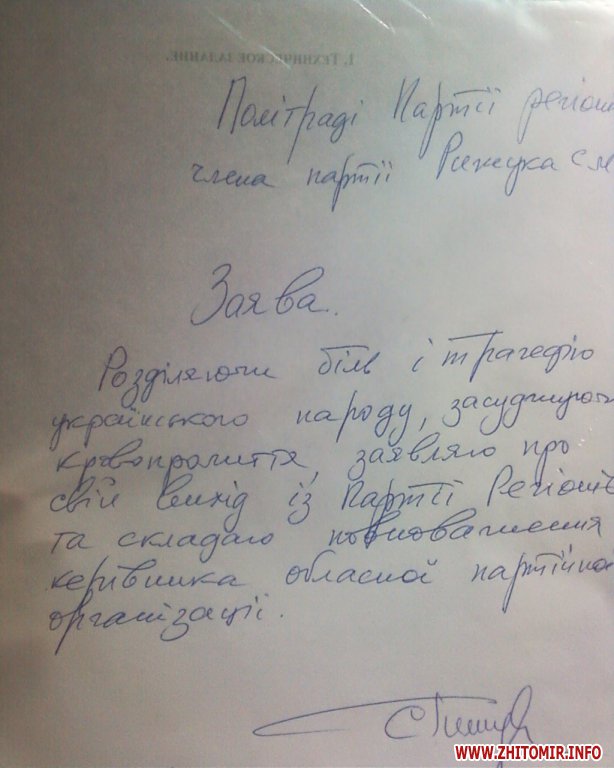 1. Техническое задание.
Політраді Партії регіон
члена партії Рижука С М
Заява.
Розділяючи біль і трагедію
українського народу, засуджуючи
кровопролиття, заявляю про
свій вихід із Партії Регіонів
та складаю повноваження
керівника обласної партійно
організації.
WWW.ZHITOMIR.INFO